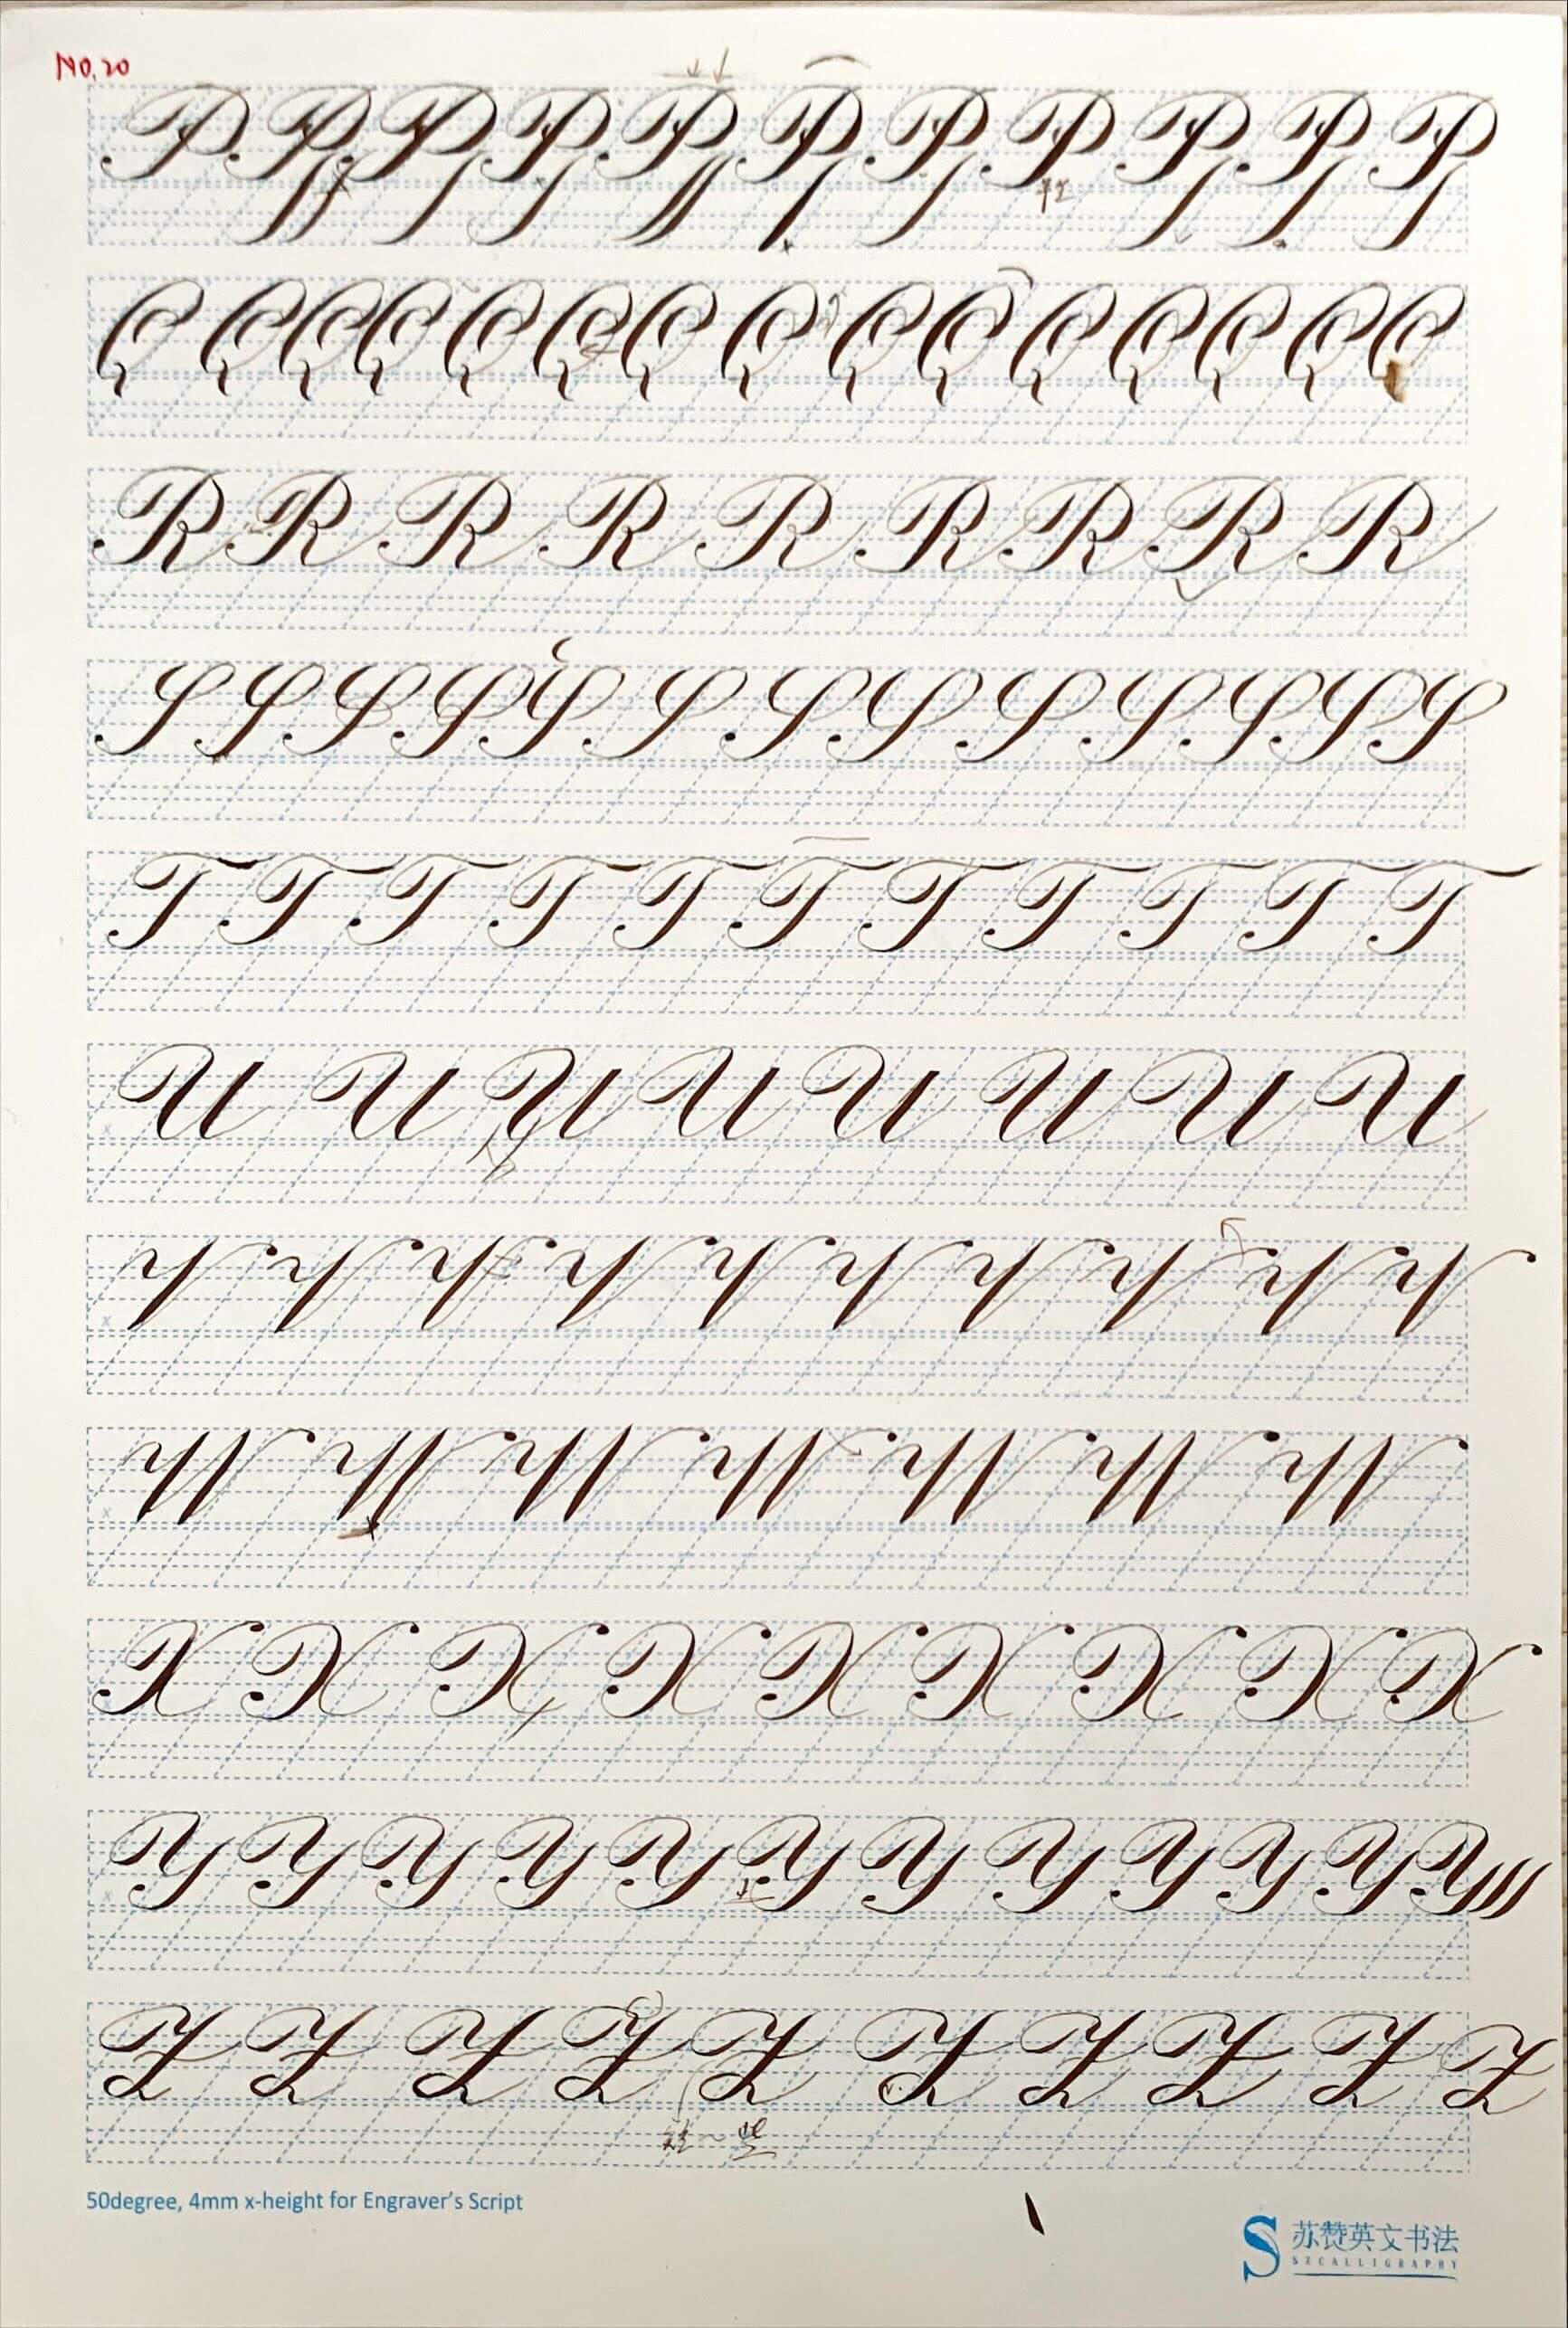 NO.20
P P P P P P P P P P P
Q Q Q Q Q Q Q Q Q Q Q Q Q Q Q
R R R R R R R R R
S S S S S S S S S S S S S
T T T T T T T T T T T
U U U U U U U U
x
V V V V V V V V V V
x
W W W W W W W
x
X X X X X X X X X
Y Y Y Y Y Y Y Y Y Y Y Y
x
Z Z Z Z Z Z Z Z Z Z
50degree, 4mm x-height for Engraver's Script
S 苏赞英文书法
SZCALLIGRAPHY